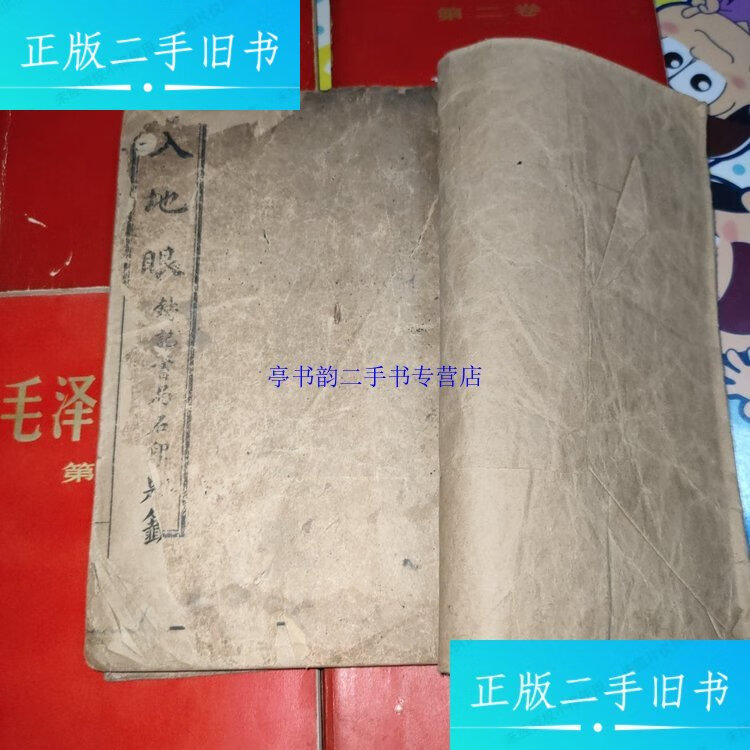 正版二手旧书
第二卷
入地眼
書局石印
亭书韵二手书专营店
毛泽
第
正版二手旧书